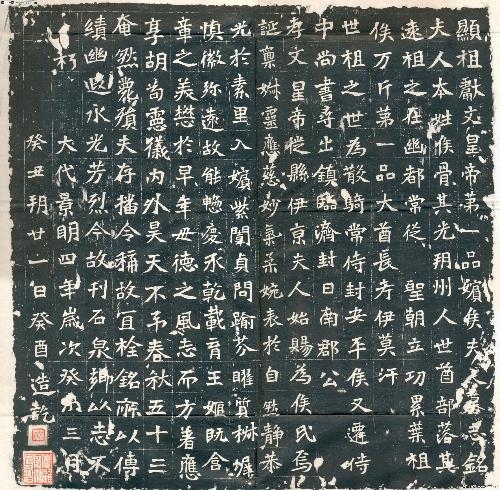 顯祖獻文皇帝第一品嬪侯夫人墓志銘
夫人本姓侯骨其先朔州人世酋部落其
遠祖之在幽都常從聖朝立功累葉祖
俟万斤第一品大酋長考伊莫汗
世祖之世為散騎常侍封安平侯又遷侍
中尚書尋出鎮臨濟封日南郡公
孝文皇帝徙縣伊京夫人始賜為侯氏焉
誕稟姝靈應慈妙氣柔婉表於自然靜恭
光於素里入嬪紫闈貞問踰芬曜質椒墀
慎徽弥遠故能憁慶承乾載育王姬既含
章之美懋於早年毋德之風志而方著應
享胡苟憲儀內外昊天不弔春秋五十三
奄然薨殞夫存播令稱故宜栓銘所以傳
績幽𡑞永光芳烈今故刊石泉鄉以志不
朽大代景明四年歲次癸未三月
癸丑朔廿一日癸酉造訖